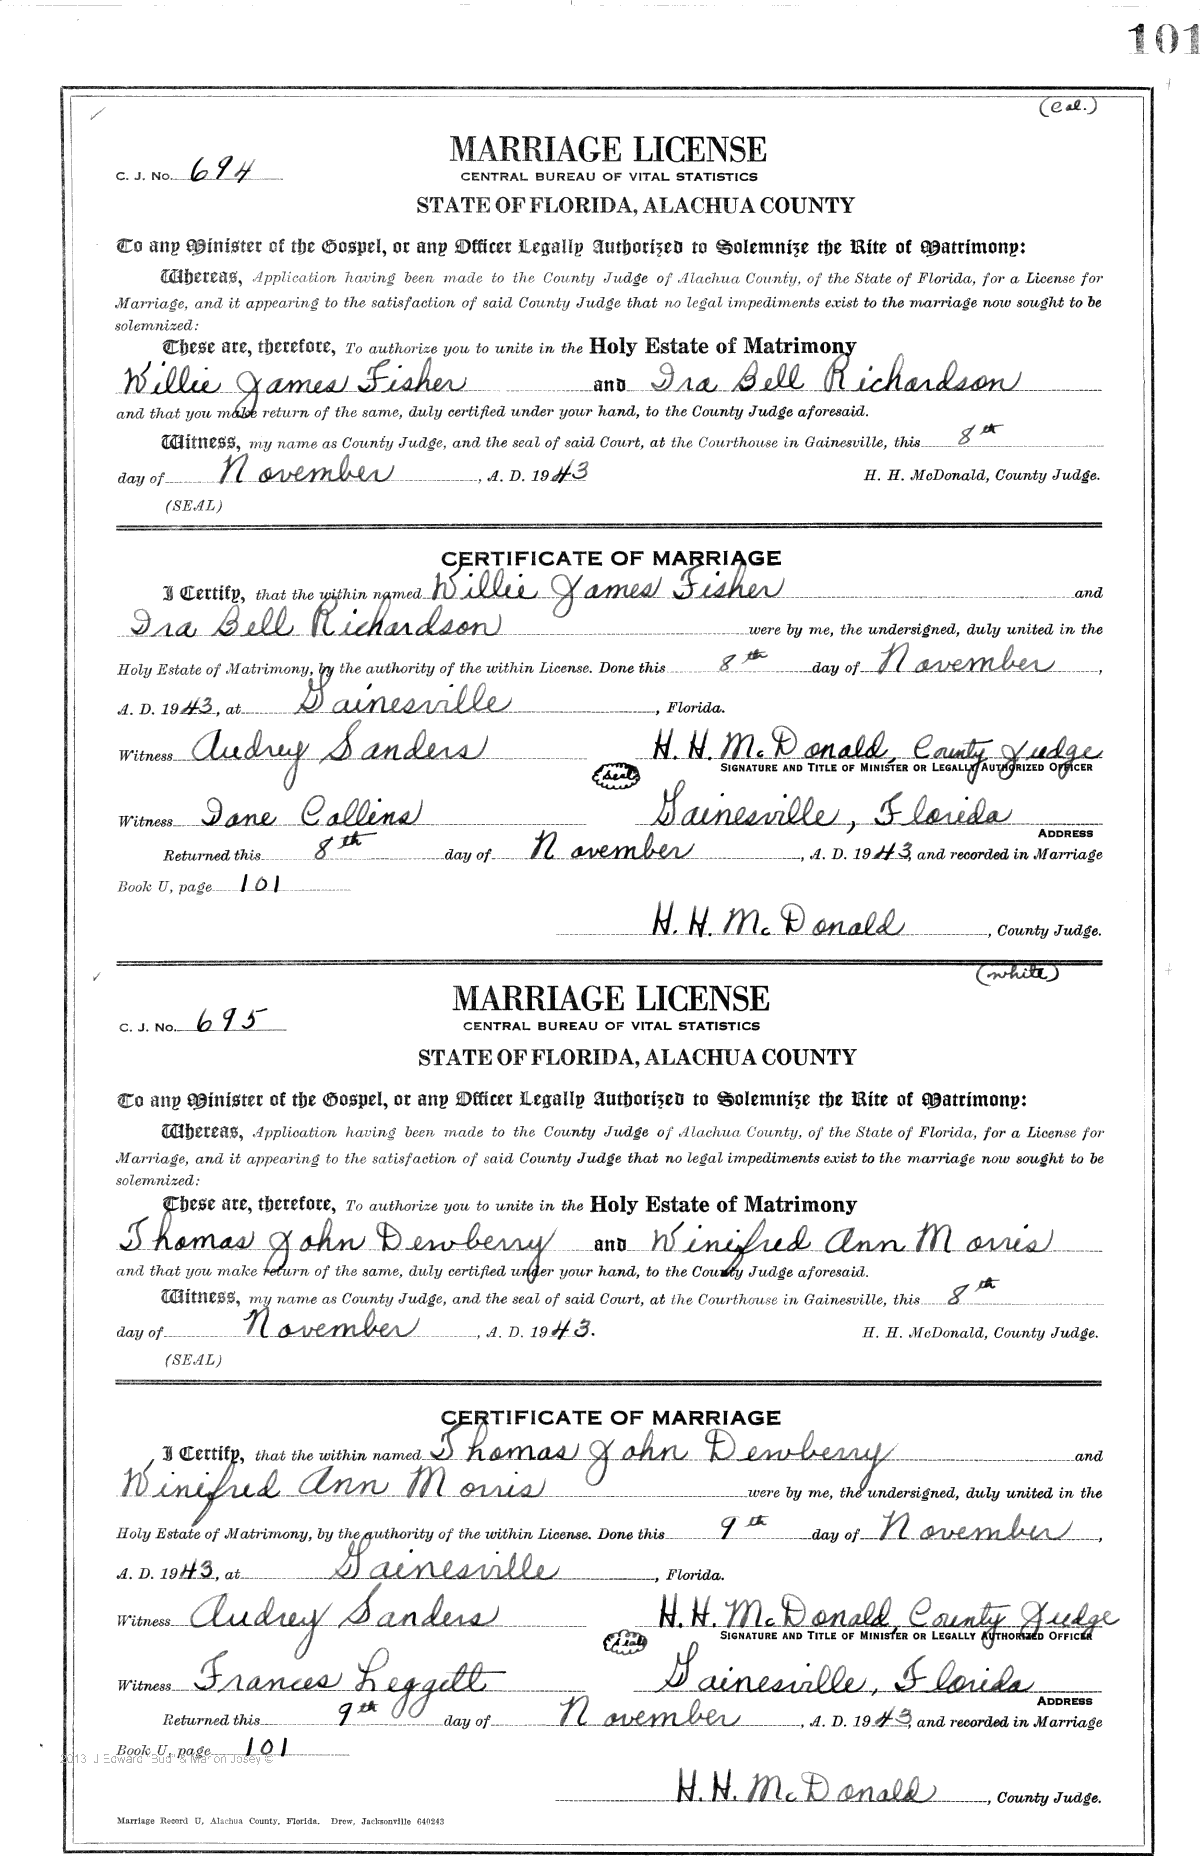 101
(Col.)
MARRIAGE LICENSE
C. J. No. 694
CENTRAL BUREAU OF VITAL STATISTICS
STATE OF FLORIDA, ALACHUA COUNTY
To any Minister of the Gospel, or any Officer Legally Authorized to Solemnize the Rite of Matrimony:
Whereas, Application having been made to the County Judge of Alachua County, of the State of Florida, for a License for
Marriage, and it appearing to the satisfaction of said County Judge that no legal impediments exist to the marriage now sought to be
solemnized:
These are, therefore, To authorize you to unite in the Holy Estate of Matrimony
Willie James Fisher and Ira Bell Richardson
and that you make return of the same, duly certified under your hand, to the County Judge aforesaid.
Witness, my name as County Judge, and the seal of said Court, at the Courthouse in Gainesville, this 8th
day of November, A. D. 1943 H. H. McDonald, County Judge.
(SEAL)
CERTIFICATE OF MARRIAGE
I Certify, that the within named Willie James Fisher and
Ira Bell Richardson were by me, the undersigned, duly united in the
Holy Estate of Matrimony, by the authority of the within License. Done this 8th day of November,
A. D. 1943, at Gainesville, Florida.
Witness Audrey Sanders H. H. McDonald, County Judge
(seal) SIGNATURE AND TITLE OF MINISTER OR LEGALLY AUTHORIZED OFFICER
Witness Iane Collins Gainesville, Florida
ADDRESS
Returned this 8th day of November, A. D. 1943, and recorded in Marriage
Book U, page 101
H. H. McDonald, County Judge.
(white)
MARRIAGE LICENSE
C. J. No. 695
CENTRAL BUREAU OF VITAL STATISTICS
STATE OF FLORIDA, ALACHUA COUNTY
To any Minister of the Gospel, or any Officer Legally Authorized to Solemnize the Rite of Matrimony:
Whereas, Application having been made to the County Judge of Alachua County, of the State of Florida, for a License for
Marriage, and it appearing to the satisfaction of said County Judge that no legal impediments exist to the marriage now sought to be
solemnized:
These are, therefore, To authorize you to unite in the Holy Estate of Matrimony
Thomas John Dewberry and Winifred Ann Morris
and that you make return of the same, duly certified under your hand, to the County Judge aforesaid.
Witness, my name as County Judge, and the seal of said Court, at the Courthouse in Gainesville, this 8th
day of November, A. D. 1943. H. H. McDonald, County Judge.
(SEAL)
CERTIFICATE OF MARRIAGE
I Certify, that the within named Thomas John Dewberry and
Winifred Ann Morris were by me, the undersigned, duly united in the
Holy Estate of Matrimony, by the authority of the within License. Done this 9th day of November,
A. D. 1943, at Gainesville, Florida.
Witness Audrey Sanders H. H. McDonald, County Judge
(seal) SIGNATURE AND TITLE OF MINISTER OR LEGALLY AUTHORIZED OFFICER
Witness Frances Leggett Gainesville, Florida
ADDRESS
Returned this 9th day of November, A. D. 1943, and recorded in Marriage
Book U, page 101
2013 J Edward "Bud" & Marion Josey ©
H. H. McDonald, County Judge.
Marriage Record U, Alachua County, Florida. Drew, Jacksonville 640243